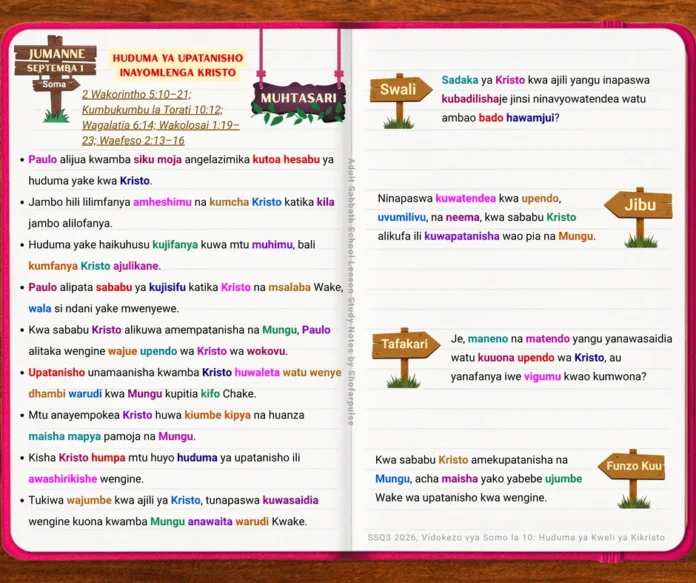 JUMANNE
SEPTEMBA 1
Soma
HUDUMA YA UPATANISHO
INAYOMLENGA KRISTO
2 Wakorintho 5:10–21;
Kumbukumbu la Torati 10:12;
Wagalatia 6:14; Wakolosai 1:19–
23; Waefeso 2:13–16
MUHTASARI
• Paulo alijua kwamba siku moja angelazimika kutoa hesabu ya
huduma yake kwa Kristo.
• Jambo hili lilimfanya amheshimu na kumcha Kristo katika kila
jambo alilofanya.
• Huduma yake haikuhusu kujifanya kuwa mtu muhimu, bali
kumfanya Kristo ajulikane.
• Paulo alipata sababu ya kujisifu katika Kristo na msalaba Wake,
wala si ndani yake mwenyewe.
• Kwa sababu Kristo alikuwa amempatanisha na Mungu, Paulo
alitaka wengine wajue upendo wa Kristo wa wokovu.
• Upatanisho unamaanisha kwamba Kristo huwaleta watu wenye
dhambi warudi kwa Mungu kupitia kifo Chake.
• Mtu anayempokea Kristo huwa kiumbe kipya na huanza
maisha mapya pamoja na Mungu.
• Kisha Kristo humpa mtu huyo huduma ya upatanisho ili
awashirikishe wengine.
• Tukiwa wajumbe kwa ajili ya Kristo, tunapaswa kuwasaidia
wengine kuona kwamba Mungu anawaita warudi Kwake.
Adult Sabbath School Lesson Study Notes by Shofarpulse
Swali
Sadaka ya Kristo kwa ajili yangu inapaswa
kubadilishaje jinsi ninavyowatendea watu
ambao bado hawamjui?
Jibu
Ninapaswa kuwatendea kwa upendo,
uvumilivu, na neema, kwa sababu Kristo
alikufa ili kuwapatanisha wao pia na Mungu.
Tafakari
Je, maneno na matendo yangu yanawasaidia
watu kuuona upendo wa Kristo, au
yanafanya iwe vigumu kwao kumwona?
Funzo Kuu
Kwa sababu Kristo amekupatanisha na
Mungu, acha maisha yako yabebe ujumbe
Wake wa upatanisho kwa wengine.
SSQ3 2026, Vidokezo vya Somo la 10: Huduma ya Kweli ya Kikristo